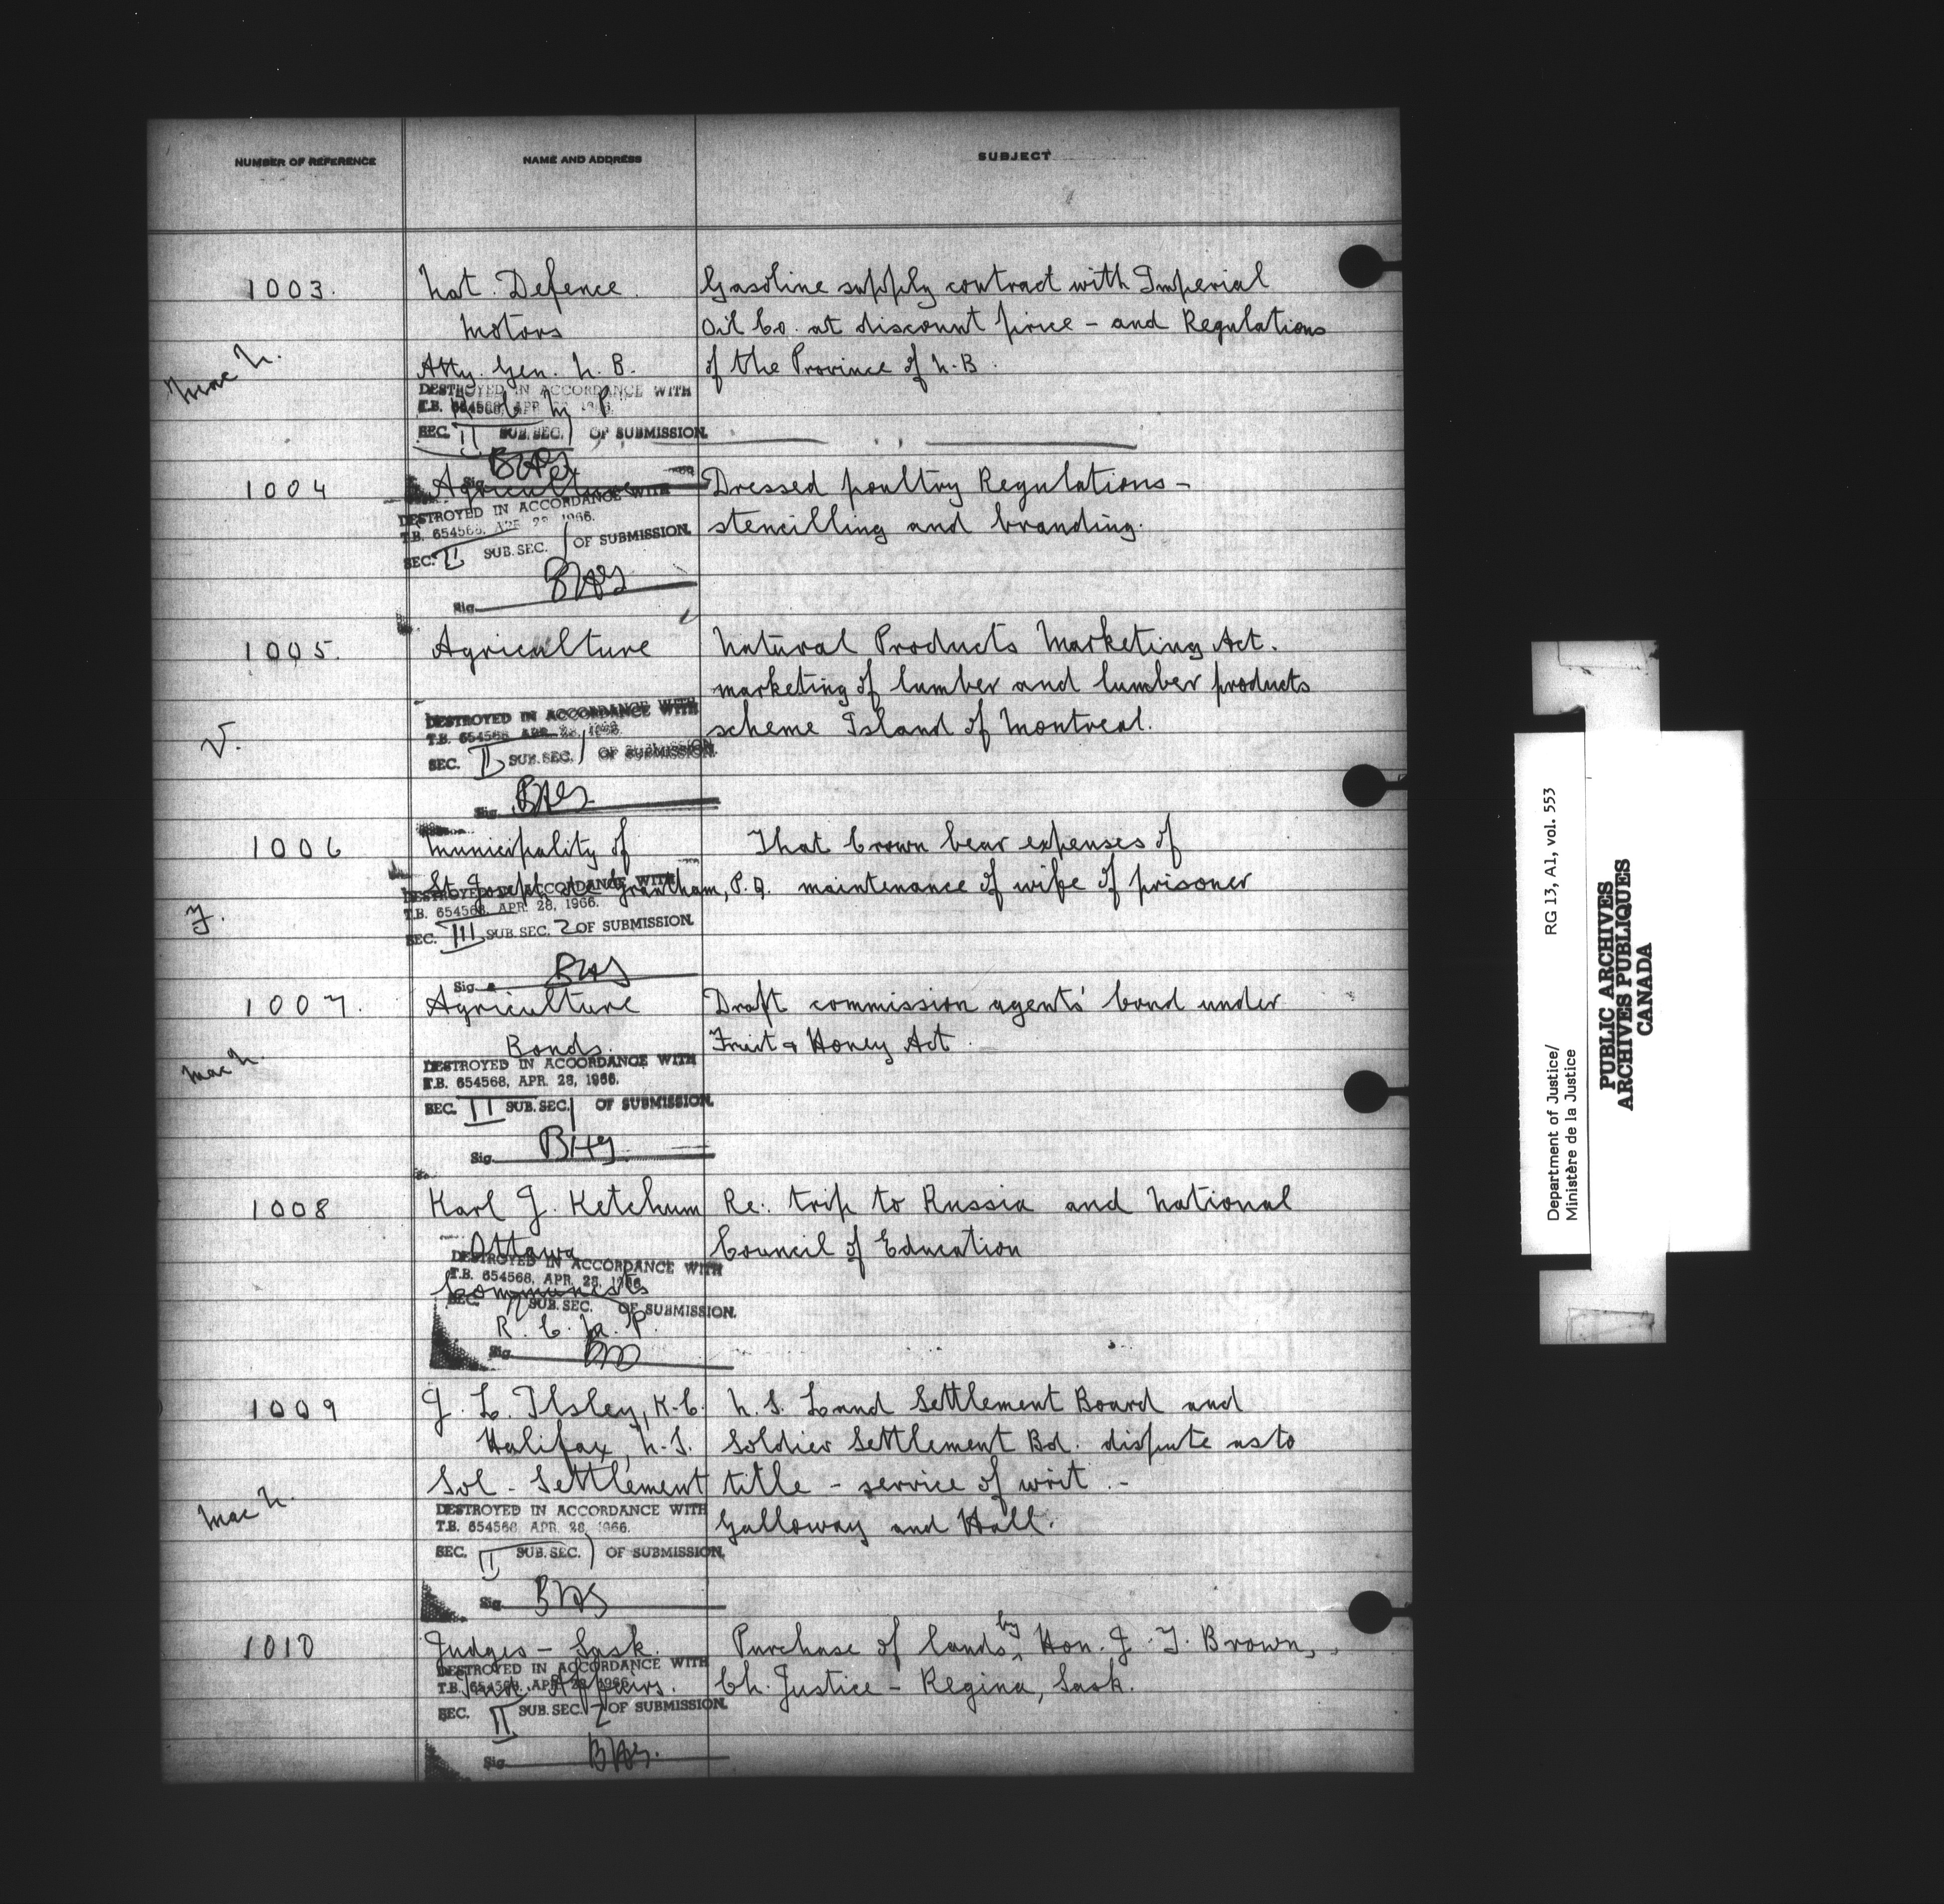 NUMBER OF REFERENCE NAME AND ADDRESS SUBJECT
1003. Nat. Defence. Gasoline supply contract with Imperial
Motors Oil Co. at discount price - and Regulations
Mac N. Atty. Gen. N. B. of the Province of N.B.
DESTROYED IN ACCORDANCE WITH
T.B. 654568, APR 28, 1966.
SEC. II SUB. SEC. 1 OF SUBMISSION.
Sig.
1004 Agriculture Dressed poultry Regulations -
DESTROYED IN ACCORDANCE WITH
T.B. 654568, APR. 28, 1966. stencilling and branding.
SEC. II SUB. SEC. 1 OF SUBMISSION.
Sig.
1005. Agriculture Natural Products Marketing Act.
marketing of lumber and lumber products
DESTROYED IN ACCORDANCE WITH
V. T.B. 654568, APR. 28, 1966. scheme Island of Montreal.
SEC. II SUB. SEC. 1 OF SUBMISSION.
Sig.
1006 Municipality of That Crown bear expenses of
St. Joseph de Grantham, P.Q. maintenance of wife of prisoner
DESTROYED IN ACCORDANCE WITH
T.B. 654568, APR. 28, 1966.
SEC. III SUB. SEC. 2 OF SUBMISSION.
Sig.
1007. Agriculture Draft commission agents' bond under
Mac N. Bonds. Fruit & Honey Act.
DESTROYED IN ACCORDANCE WITH
T.B. 654568, APR. 28, 1966.
SEC. II SUB. SEC. 1 OF SUBMISSION.
Sig.
1008 Karl J. Ketchum Re: trip to Russia and National
Ottawa Council of Education
DESTROYED IN ACCORDANCE WITH
T.B. 654568, APR. 28, 1966.
Communists
SEC. SUB. SEC. OF SUBMISSION.
R. C. M. P.
Sig.
1009 J. L. Ilsley, K.C. N. S. Land Settlement Board and
Halifax, N.S. Soldier Settlement Bd. dispute as to
Mac N. Sol. Settlement title - service of writ. -
DESTROYED IN ACCORDANCE WITH
T.B. 654568, APR. 28, 1966. Galloway and Hall.
SEC. II SUB. SEC. 1 OF SUBMISSION.
Sig.
1010 Judges - Sask. Purchase of lands by Hon. J. T. Brown,
DESTROYED IN ACCORDANCE WITH
Ind. Affairs. Ch. Justice - Regina, Sask.
T.B. 654568, APR 28, 1966.
SEC. II SUB. SEC. 2 OF SUBMISSION.
Sig.
Department of Justice/ RG 13, A1, vol. 553
Ministère de la Justice
PUBLIC ARCHIVES
ARCHIVES PUBLIQUES
CANADA